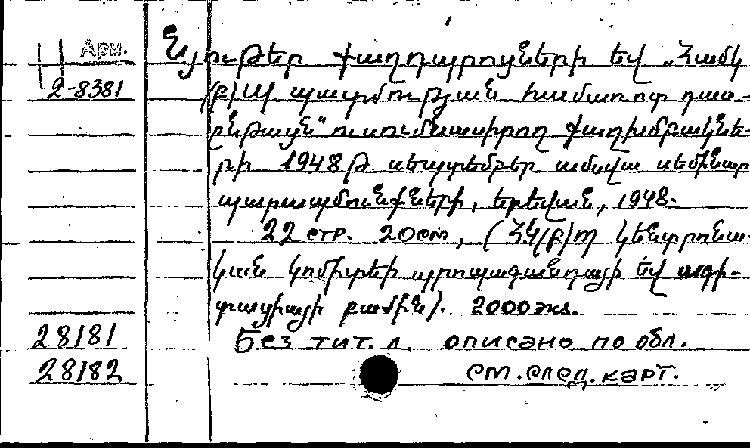 Арм.
2-8381
Նյութեր քաղդպրոցների եվ „Համկ
(բ)կ պատմության համառոտ դաս-
ընթացն“ ուսումնասիրող քաղխմբակնե-
րի 1948թ սեպտեմբեր ամսվա սեմինար
պարապմունքների, Երեվան, 1948.
22 стр. 20cm, (ՀԿ(բ)Պ Կենտրոնա-
կան կոմիտեի պրոպագանդայի եվ ագի-
տացիայի բաժին). 2000 экз.
28181 Без тит. л. описано по обл.
28182 см. след. карт.